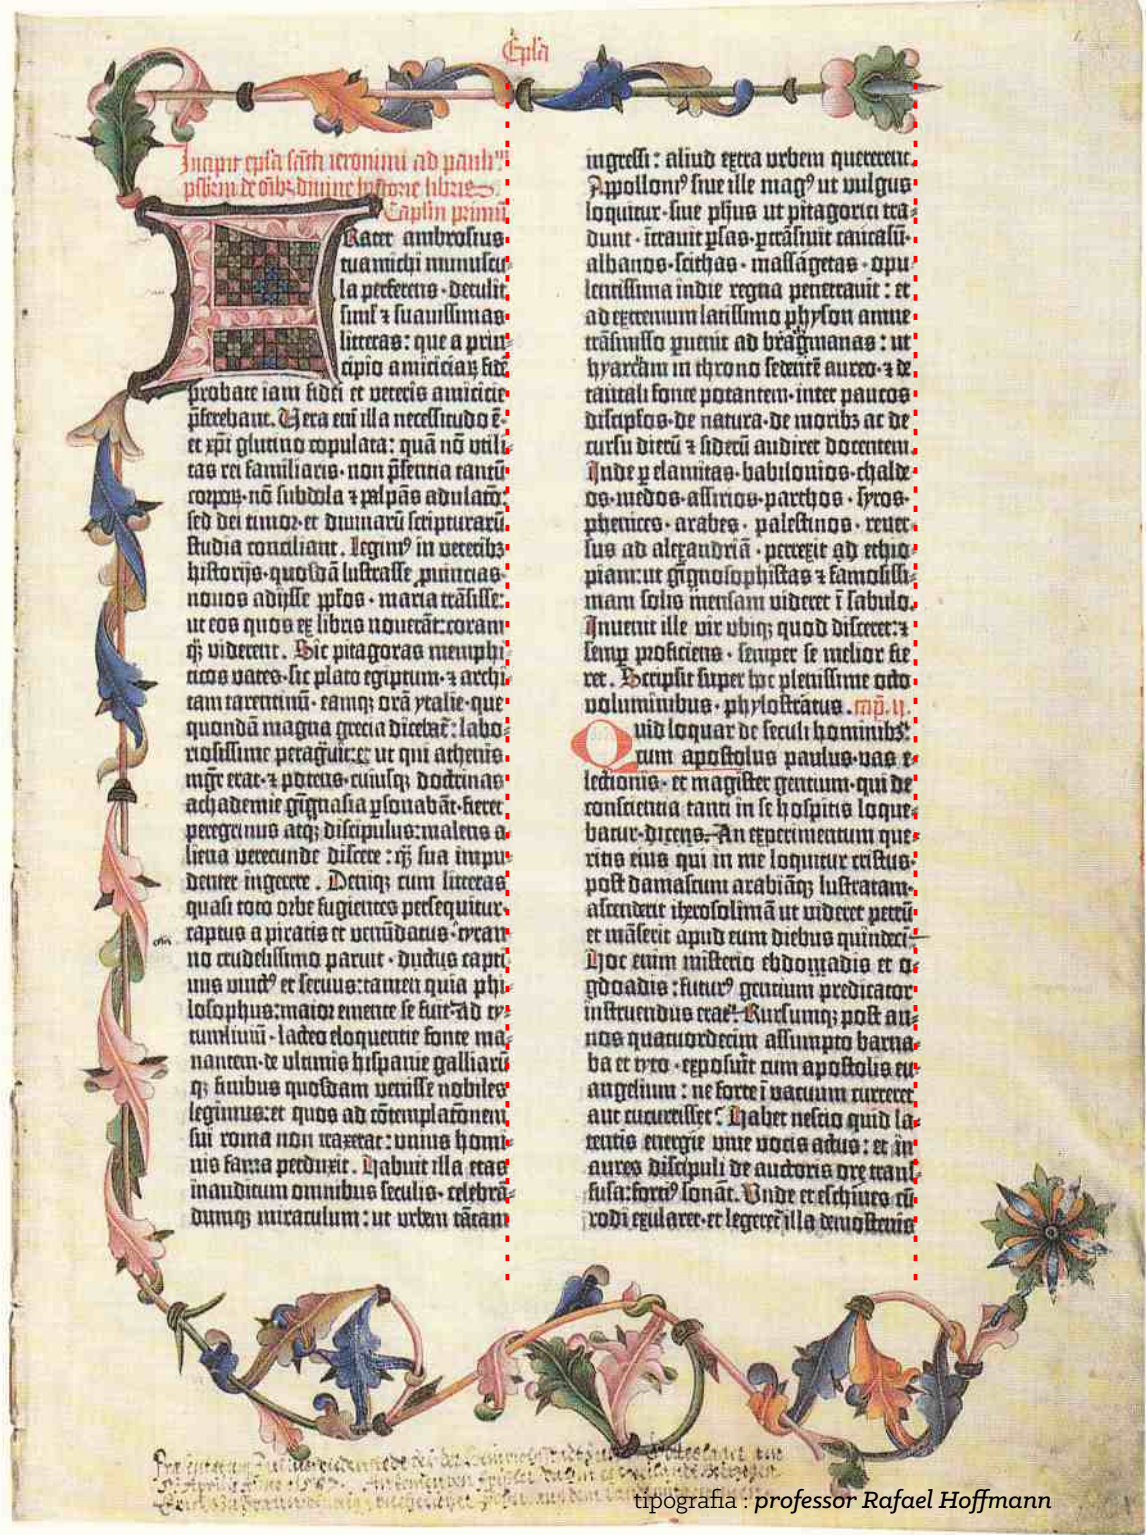 Epl̄a
Incipit epl̄a sāncti ieronimi ad paulīnū
pr̄sbiterū de om̄ibꝫ diuine historie libris.
Capl̄m primū
Rater ambrosius
tua michi munuscu-
la perferens · detulit
siml̄ ⁊ suauissimas
litteras: que a prin-
cipio amiciciaꝝ fidē
probate iam fidei et veteris amicicie
p̄ferebant. Vera eni illa necessitudo ē·
et xp̄i glutino copulata: quā nō utili-
tas rei familiaris · non p̄sentia tantū
corpoꝝ · nō subdola ⁊ palpās adulatō:
sed dei timor · et diuinarū scripturarū
studia conciliant. Legimꝰ in veteribꝫ
historijs · quosdā lustrasse ꝓuincias ·
nouos adijsse pp̄los · maria trāsisse:
ut eos quos ex libris nouerāt: coram
qꝫ viderent. Sic pitagoras memphi-
ticos vates · sic plato egiptum · ⁊ archi-
tam tarentinū · eamqꝫ orā ytalie · que
quondā magna grecia dicebat̄: labo-
riosissime peragrauit: et ut qui athenis
mgr̄ erat · ⁊ potens · cuiusqꝫ doctrinas
achademie gīgnasia ꝑsonabāt · fieret
peregrinus atqꝫ discipulus: malens a-
liena verecunde discere: qꝫ sua impu-
denter ingerere. Deniqꝫ cum litteras
quasi toto orbe fugientes persequitur ·
captus a piratis et venūdatus · tyran-
no crudelissimo paruit · ductus capti-
uus vinctꝰ et seruus: tamen quia phi-
losophus: maior emente se fuit · ad ty-
tumliuiū · lacteo eloquentie fonte ma-
nantem · de ultimis hispanie galliarū
qꝫ finibus quosdam venisse nobiles
legimus: et quos ad cōtemplatōnem
sui roma non traxerat: unius homi-
nis fama perduxit. Habuit illa etas
inauditum omnibus seculis · celebrā-
dumqꝫ miraculum: ut urbem tātam
ingressi: aliud extra urbem quererent.
Appollonꝰ siue ille magꝰ ut vulgus
loquitur · siue ph̄us ut pitagorici tra-
dunt · ītrauit ꝑsas · ꝑtrāsiuit caucasū ·
albanos · scithas · massagetas · opu-
lentissima indie regna penetrauit: et
ad extremum latissimo physon amne
trāsmisso ꝑuenit ad bragmanas: ut
hyarcam in throno sedentē aureo · ⁊ de
tantali fonte potantem · inter paucos
discip̄los · de natura · de moribꝫ ac de
cursu dierū ⁊ siderū audiret docentem.
Inde ꝑ elamitas · babilonios · chalde-
os · medos · assirios · parthos · syros ·
phenices · arabes · palestinos · reuer-
sus ad alexandriā · perrexit ad ethio-
piam: ut gīgnosophistas ⁊ famosissi-
mam solis mensam videret ī sabulo.
Inuenit ille vir ubiqꝫ quod disceret: ⁊
semꝑ proficiens · semper se melior fie-
ret. Scripsit super hoc plenissime octo
voluminibus · phylostratus. cap̄. ij.
Quid loquar de seculi hominibꝫ:
cum apostolus paulus · vas e-
lectionis · et magister gentium · qui de
conscientia tanti in se hospitis loque-
batur · dicens. An experimentum que-
ritis eius qui in me loquitur cristus ·
post damascum arabiāqꝫ lustratam ·
ascenderit iherosolimā ut videret petrū
et māserit apud eum diebus quindeci-
Hoc enim misterio ebdomadis et o-
gdoadis: futurꝰ gentium predicator
instruendus erat. Rursumqꝫ post an-
nos quatuordecim assumpto barna-
ba et tyto · exposuit cum apostolis eu-
angelium: ne forte ī vacuum curreret
aut cucurrisset. Habet nescio quid la-
tentis energie viue vocis actus: et in
aures discipuli de auctoris ore trans-
fusa: fortiꝰ sonāt. Unde et eschineo cū
rodi exularet · et legeret̄ illa demostenis
tipografia : professor Rafael Hoffmann